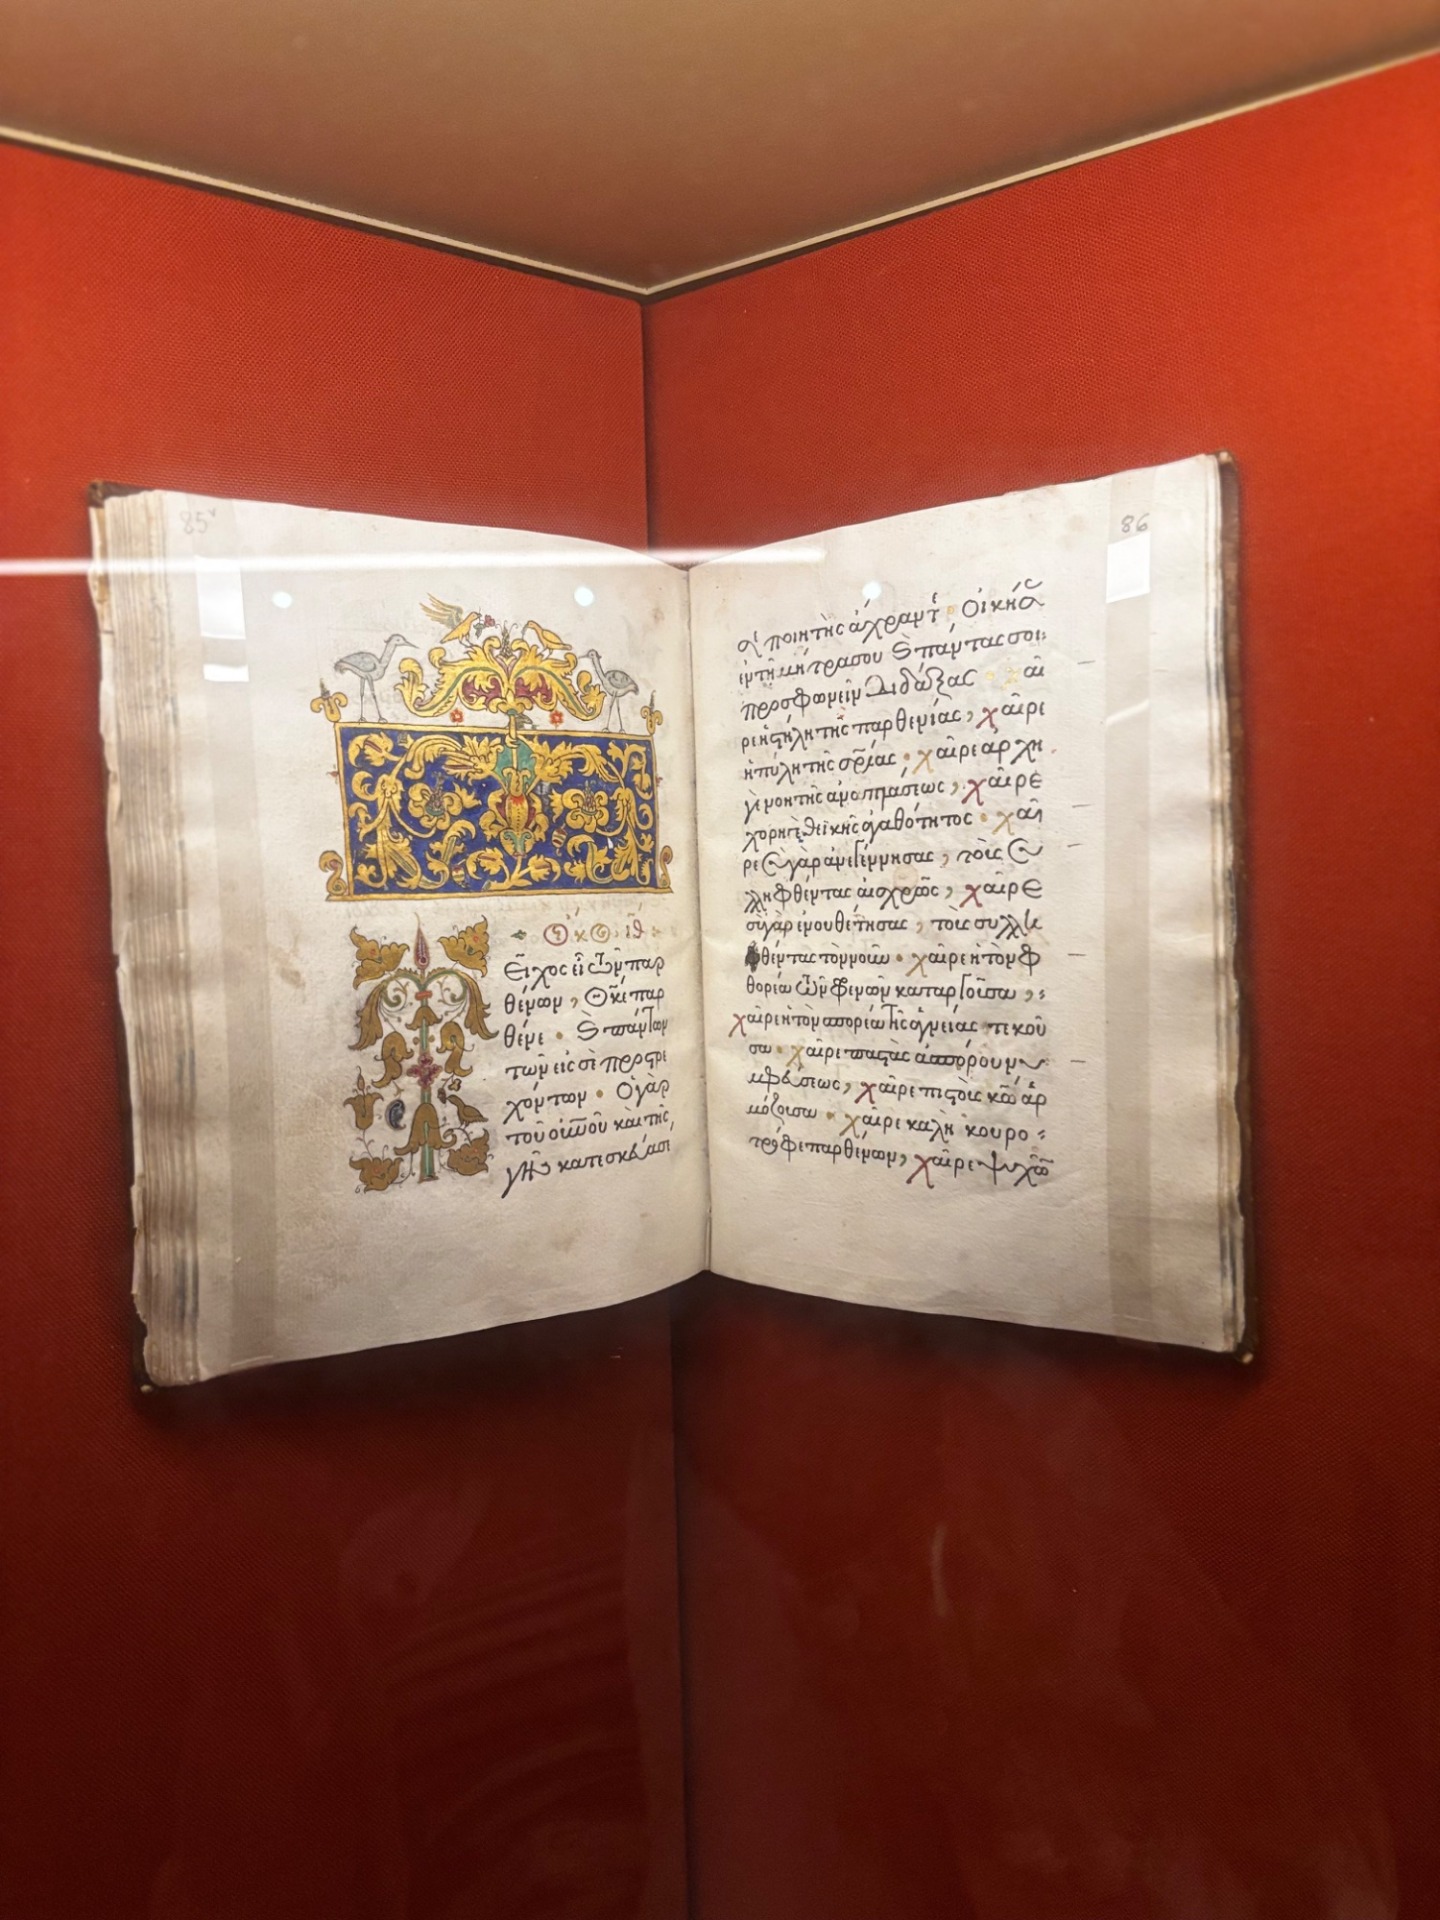 85ᵛ
Ὁ οἶκο ιθ
εῖχος εἶ τῶν παρ
θένων, Θκε παρ
θένε · Ϗ πάντων
τῶν εἰς σὲ προστρε
χόντων · Ὁ γὰρ
τοῦ οὐνοῦ καὶ τῆς
γῆς κατεσκεύασέ
86
σε ποιητὴς ἄχραντε · Οἰκήσας
ἐν τῆ μήτρα σου Ϗ πάντας σοι
προσφωνεῖν Διδάξας · χαῖ
ρε ἡ στήλη τῆς παρθενίας, χαῖρε
ἡ πύλη τῆς σρίας · χαῖρε ἀρχη
γὲ νοητῆς ἀναπλάσεως, χαῖρε
χορηγὲ θεϊκῆς ἀγαθότητος · χαῖ
ρε σὺ γὰρ ἀνεγέννησας, τοὺς συ
λληφθέντας αἰσχρῶς, χαῖρε
σὺ γὰρ ἐνουθέτησας, τοὺς συλλη
φθέντας τὸν νοῦν · χαῖρε ἡ τὸν φ
θορέα τῶν φρενῶν καταργοῦσα,
χαῖρε ἡ τὸν σπορέα τῆς ἁγνείας τεκοῦ
σα · χαῖρε παστὰς ἀσπόρου νυ
μφεύσεως, χαῖρε πιστοὺς κω ἁρ
μόζουσα · χαῖρε καλὴ κουρο
τρόφε παρθένων, χαῖρε ψυχῶν